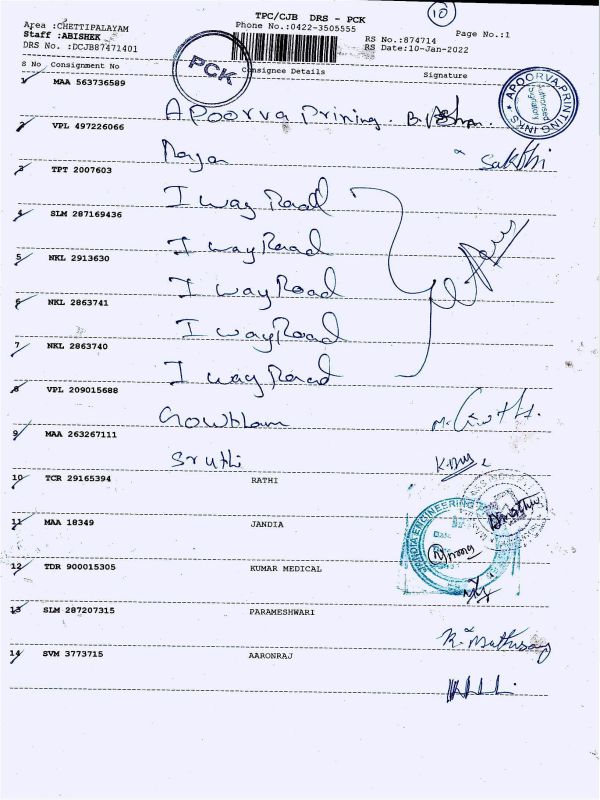 10
TPC/CJB DRS - PCK
Area :CHETTIPALAYAM
Phone No.:0422-3505555
Page No.:1
Staff :ABISHEK
RS No.:874714
DRS No. :DCJB87471401
RS Date:10-Jan-2022
S No Consignment No Consignee Details Signature
PCK
1 MAA 563736589
APoorva Prining.
APOORVA PRINTING INKS
Authorised Signatory
2 VPL 497226066
Raja Sakthi
3 TPT 2007603
I way Road
4 SLM 287169436
I way Road
5 NKL 2913630
I way Road
6 NKL 2863741
I way Road
7 NKL 2863740
I way Road
8 VPL 209015688
Gowtham
9 MAA 263267111
Sruthi
10 TCR 29165394 RATHI
11 MAA 18349 JANDIA
JANDIA ENGINEERING
Date
12 TDR 900015305 KUMAR MEDICAL
13 SLM 287207315 PARAMESHWARI
14 SVM 3773715 AARONRAJ